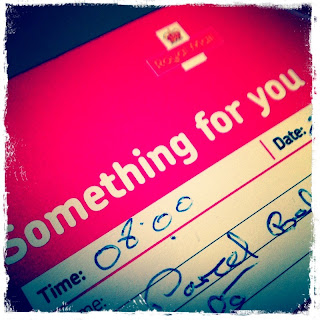 Royal Mail
Something for you
Date:
Time: 08:00
Parcel